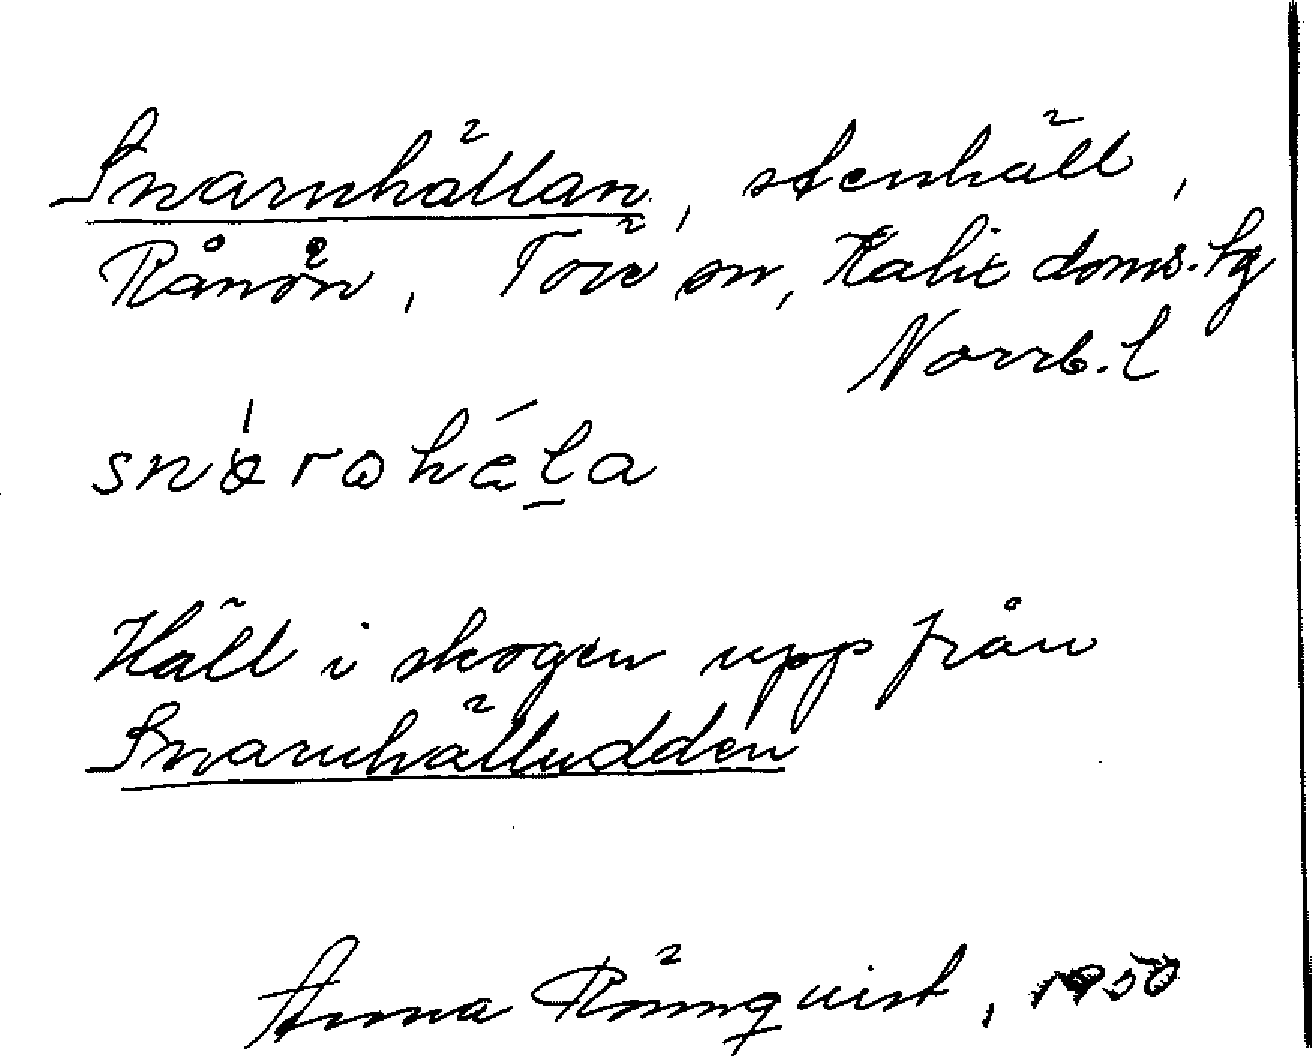 Snarnhällan, stenhäll,
Rånön, Töre sn, Kalix doms. tg
Norrb. l
Häll i skogen upp från
Snarnhälludden
Anna Rönnquist, 1950